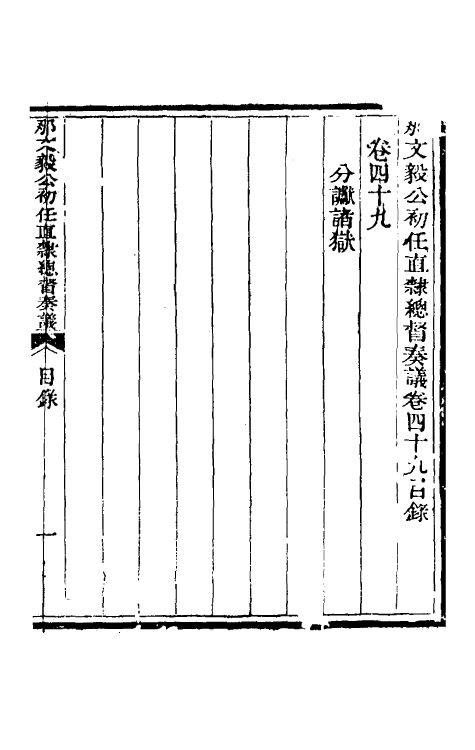 那文毅公初任直隸總督奏議卷四十九目錄
卷四十九
分讞諸獄
那文毅公初任直隸總督奏議 目錄 一